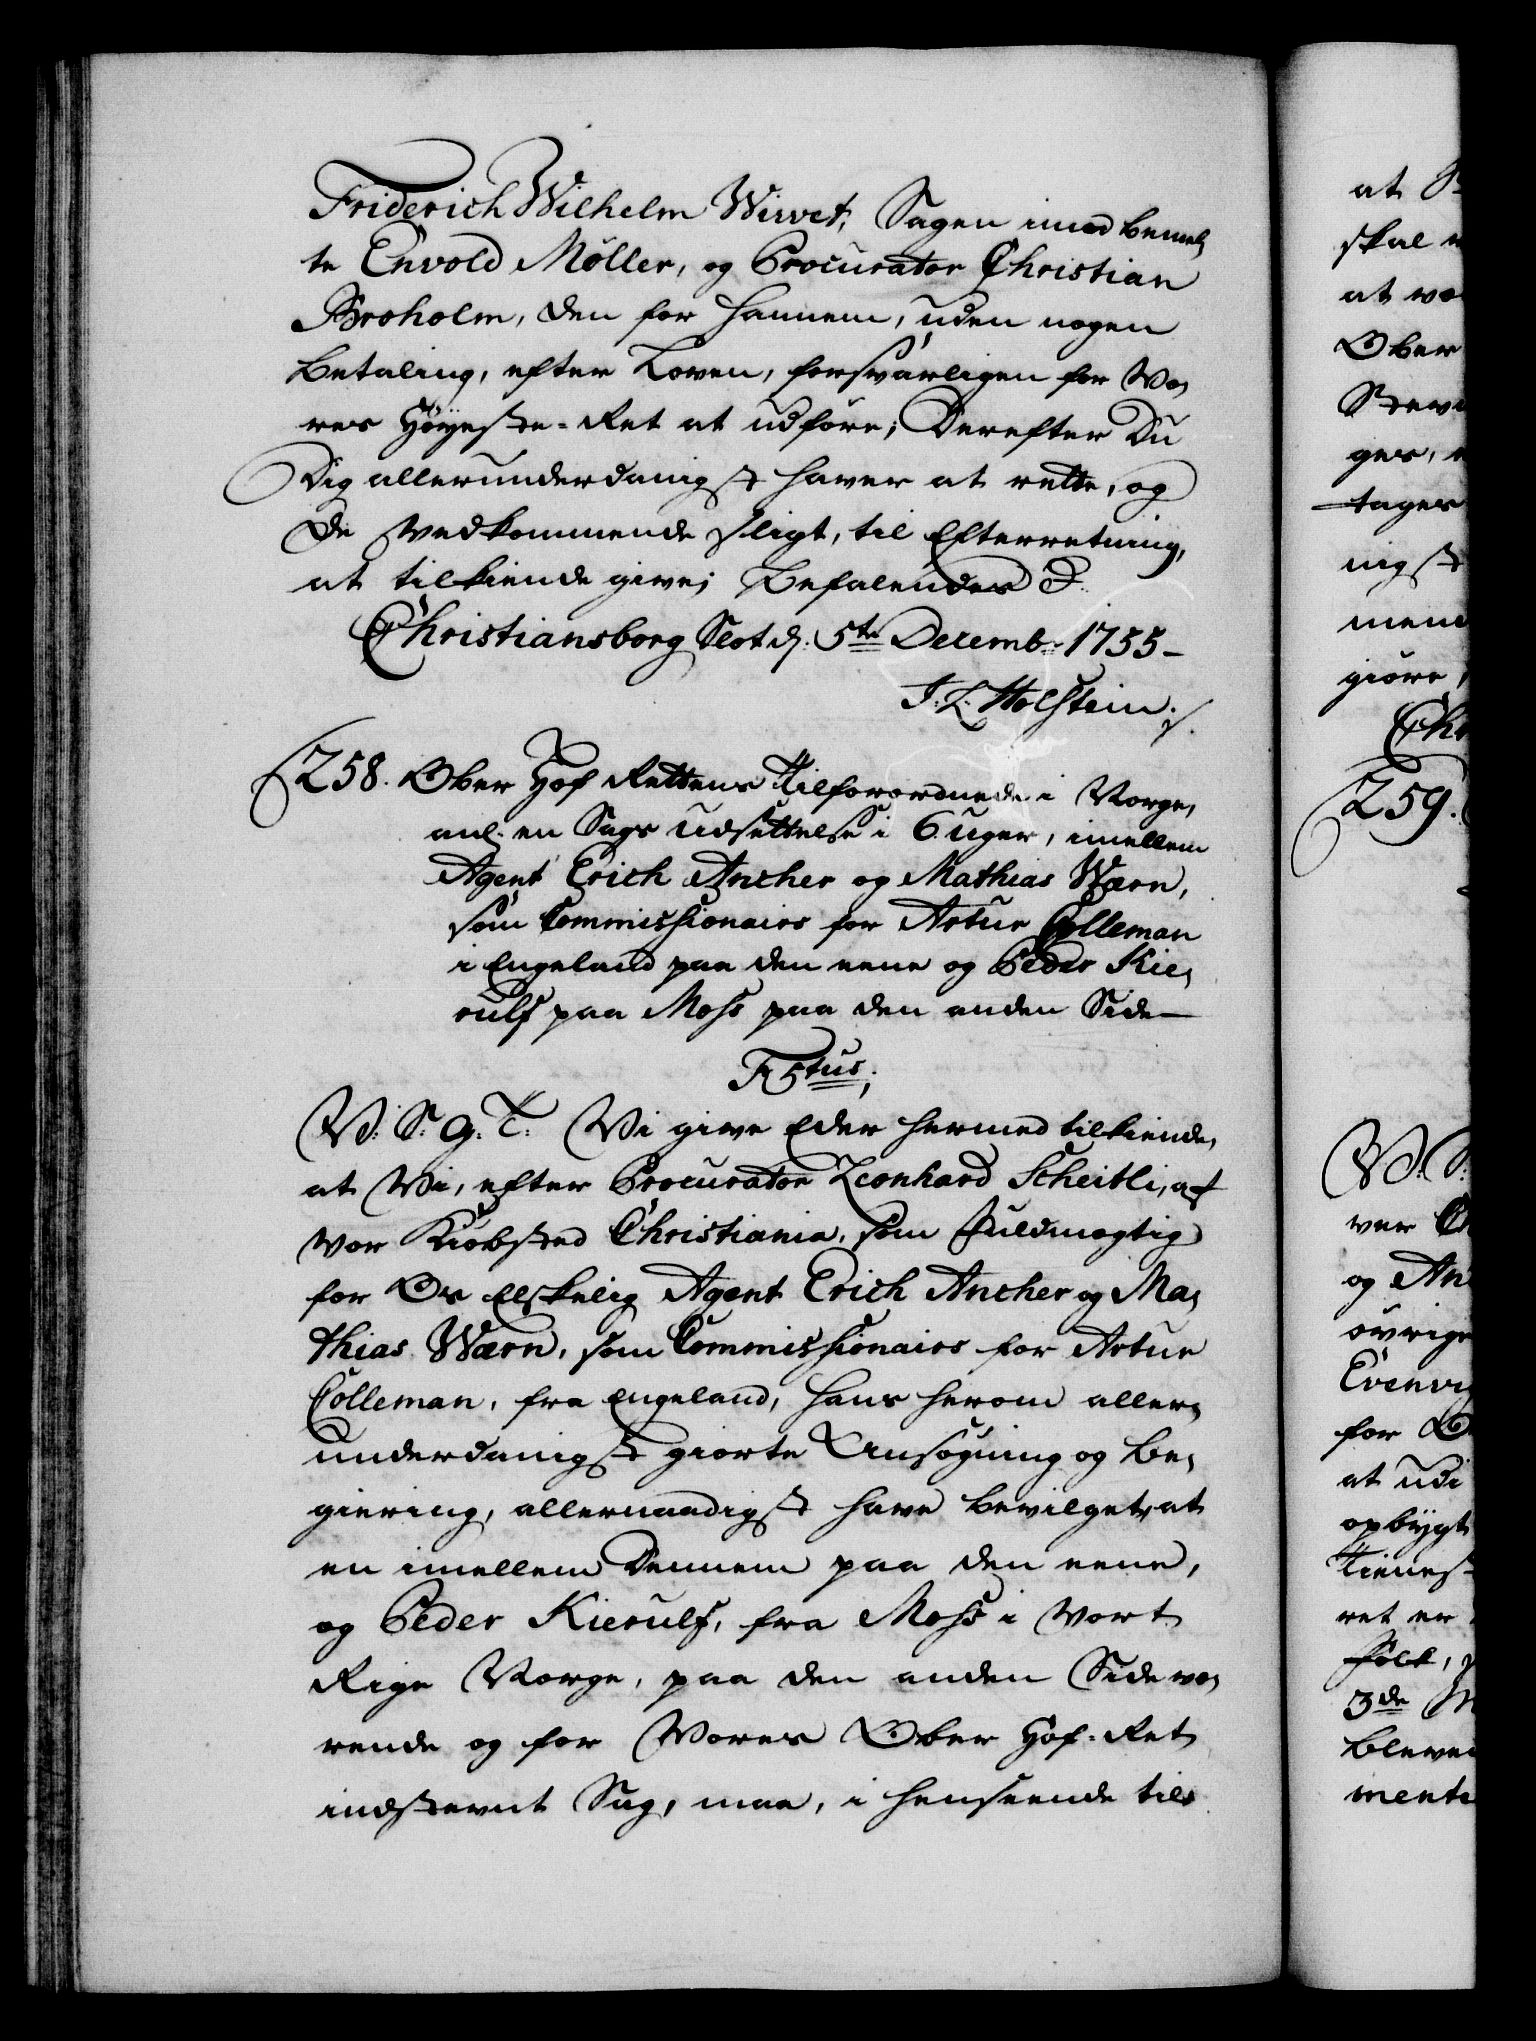 Friderich Wilhelm Wivet, Sagen imod bemel¬
te Envold Møller, og Procurator Christian
Broholm, den for hannem, uden nogen
betaling, efter Loven, forsvarligen for Vo¬
res Høyeste-Ret at udføre; Derefter Du
Dig allerunderdanigst haver at rette, og
de Vedkommende sligt, til Efterretning,
at tilkiende give; Befalendes 
Christiansborg Slot d. 5te Decemb. 1755
J. L. Holstein ./.
258. Ober Hof Rettens Tilforordnede i Norge,
anl. en Sags Udsettelse i 6 uger, imellem
Agent Erich Ancher og Mathias Wærn,
som Commissionairs for Artur Colleman
i Engeland paa den eene og Peder Kie¬
rulf paa Moss paa den anden Side
F 5tus;
V. S. G. T. Vi give Eder hermed tilkiende,
at Vi, efter Procurator Leonhard Scheitli, af
vor Kiøbsted Christiania, som Fuldmægtig
for Os Elskelig Agent Erich Ancher og Ma¬
thias Wærn, som Commissionairs for Artur
Colleman, fra Engeland, hans herom aller¬
underdanigst giorte Ansøgning og Be¬
giering, allernaadigst have bevilget, at
en imellem Dennem paa den eene,
og Peder Kierulf, fra Moss i Vort
Rige Norge, paa den anden Side væ¬
rende og for Vores Ober Hof-Ret
indstevnt Sag, maa, i henseende til
at
skal
at
Ober
ges,
tages
nigst
mene
giøre
259.
V. S.
ver
og An
øvrige
for
at udi
opbygt
ret er
Folk,
3de
bleven